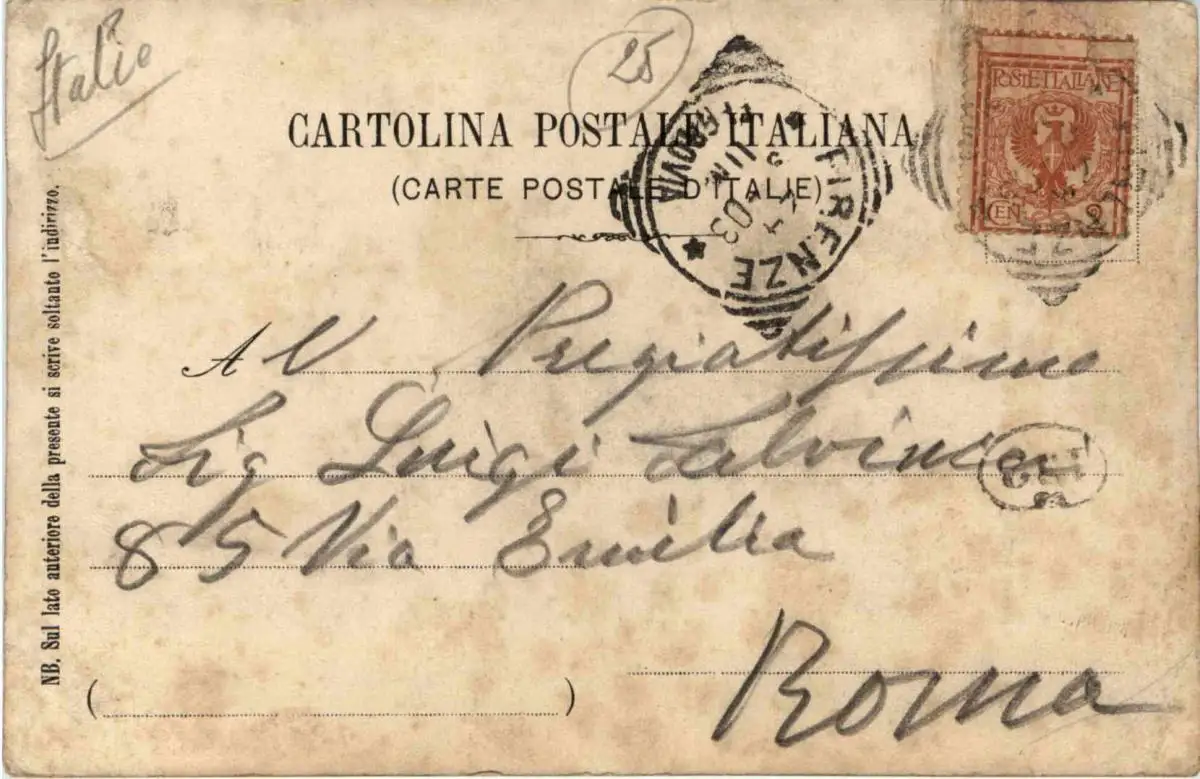 Italie
25
CARTOLINA POSTALE ITALIANA
(CARTE POSTALE D'ITALIE)
POSTE ITALIANE
CEN. 2
FIRENZE
FERROVIA
03
Al Pregiatissimo
Sig Luigi Salvini
85 Via Emilia
Roma
NB. Sul lato anteriore della presente si scrive soltanto l'indirizzo.
( )